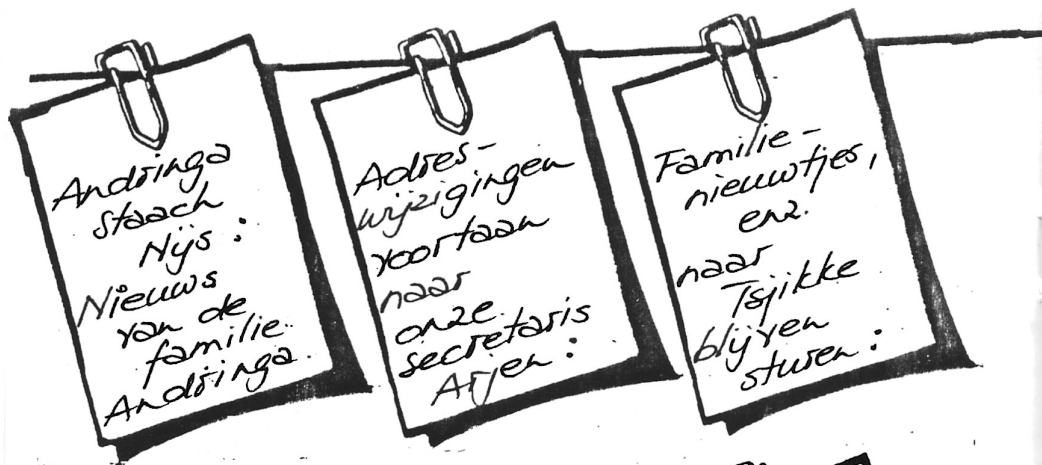 Andringa
staach
Nijs :
Nieuws
van de
familie
Andringa.
Adres-
wijzigingen
voortaan
naar
onze
secretaris
Arjen :
Familie-
nieuwtjes,
enz.
naar
Tsjikke
blijven
sturen :